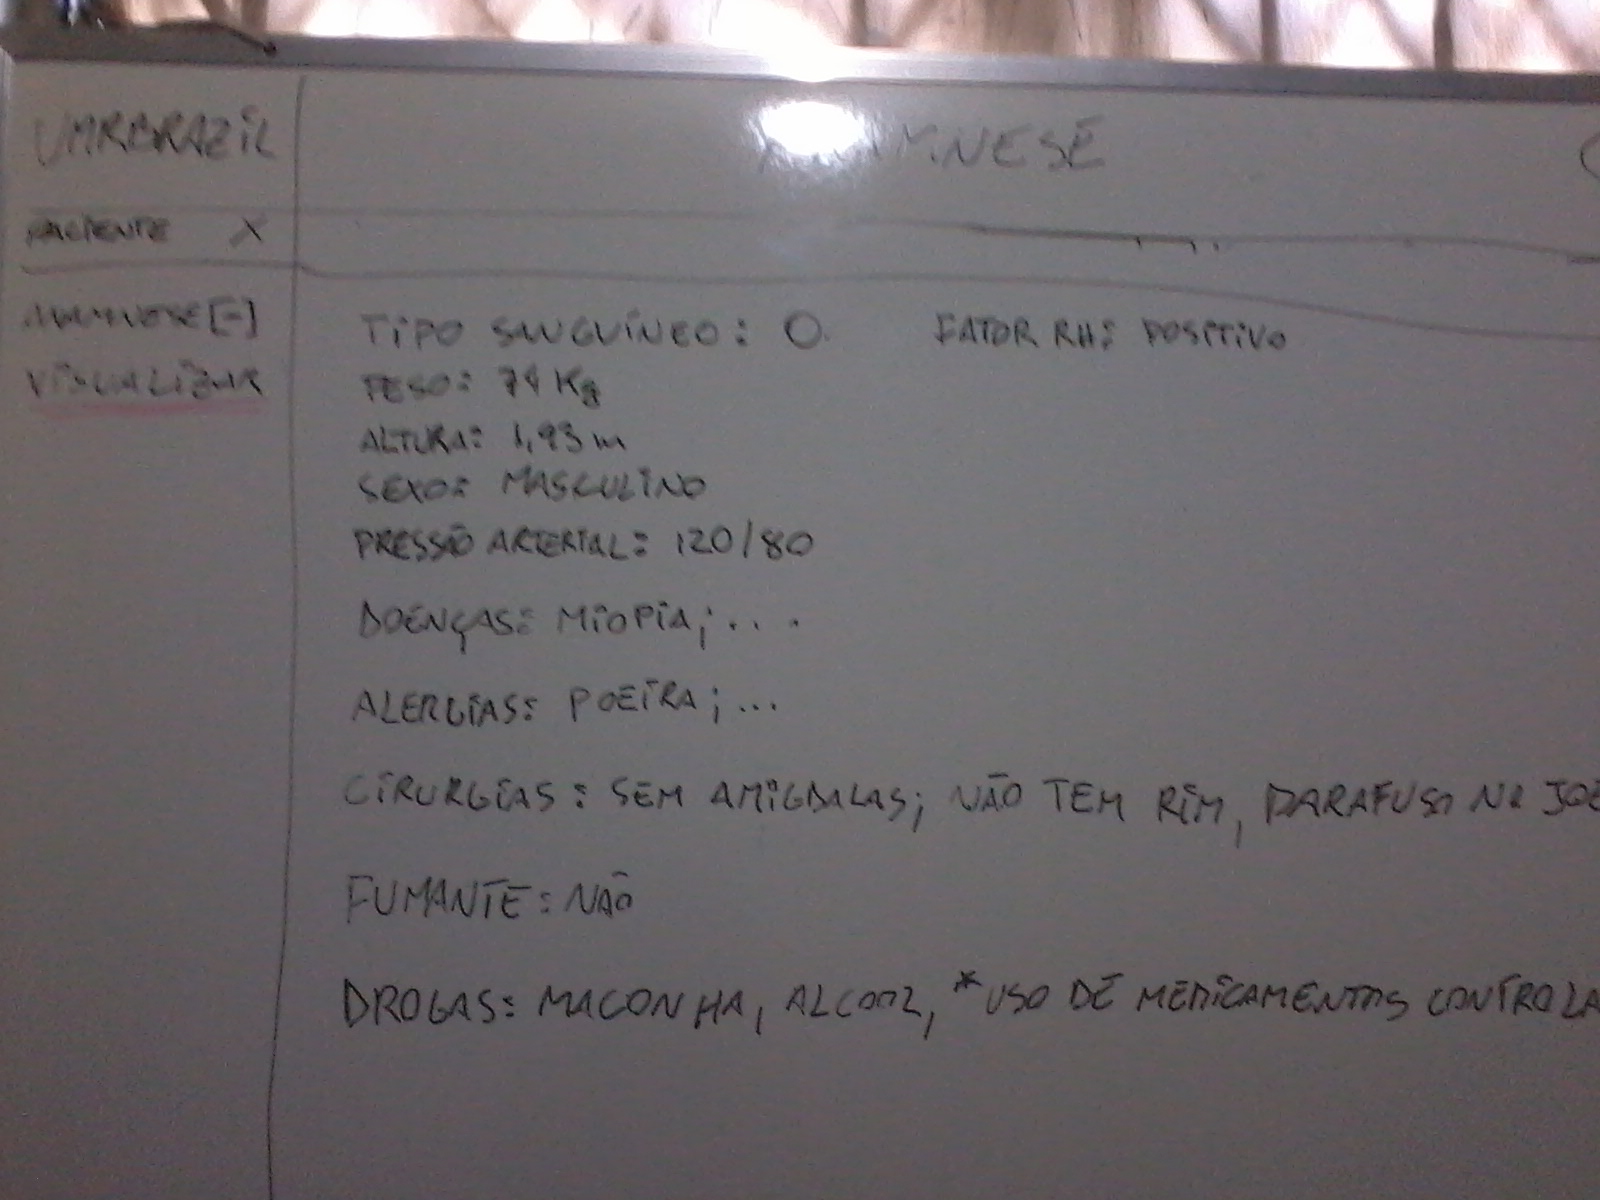 ANAMNESE
PACIENTE X
ANAMNESE [-]
VISUALIZAR
TIPO SANGUÍNEO: O FATOR RH: POSITIVO
PESO: 74 Kg
ALTURA: 1,93 m
SEXO: MASCULINO
PRESSÃO ARTERIAL: 120/80
DOENÇAS: MIOPIA; ...
ALERGIAS: POEIRA; ...
CIRURGIAS: SEM AMIGDALAS; NÃO TEM RIM, PARAFUSO NO JOE
FUMANTE: NÃO
DROGAS: MACONHA, ALCOOL, *USO DE MEDICAMENTOS CONTROLA